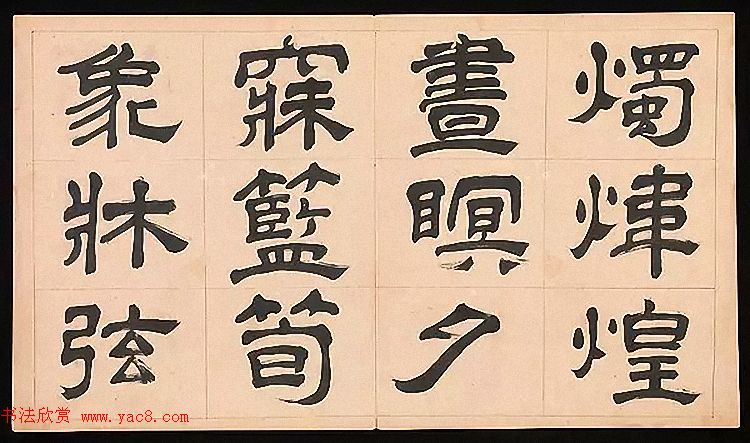 燭煒煌
晝瞑夕
寐籃筍
象牀弦
书法欣赏 www.yac8.com